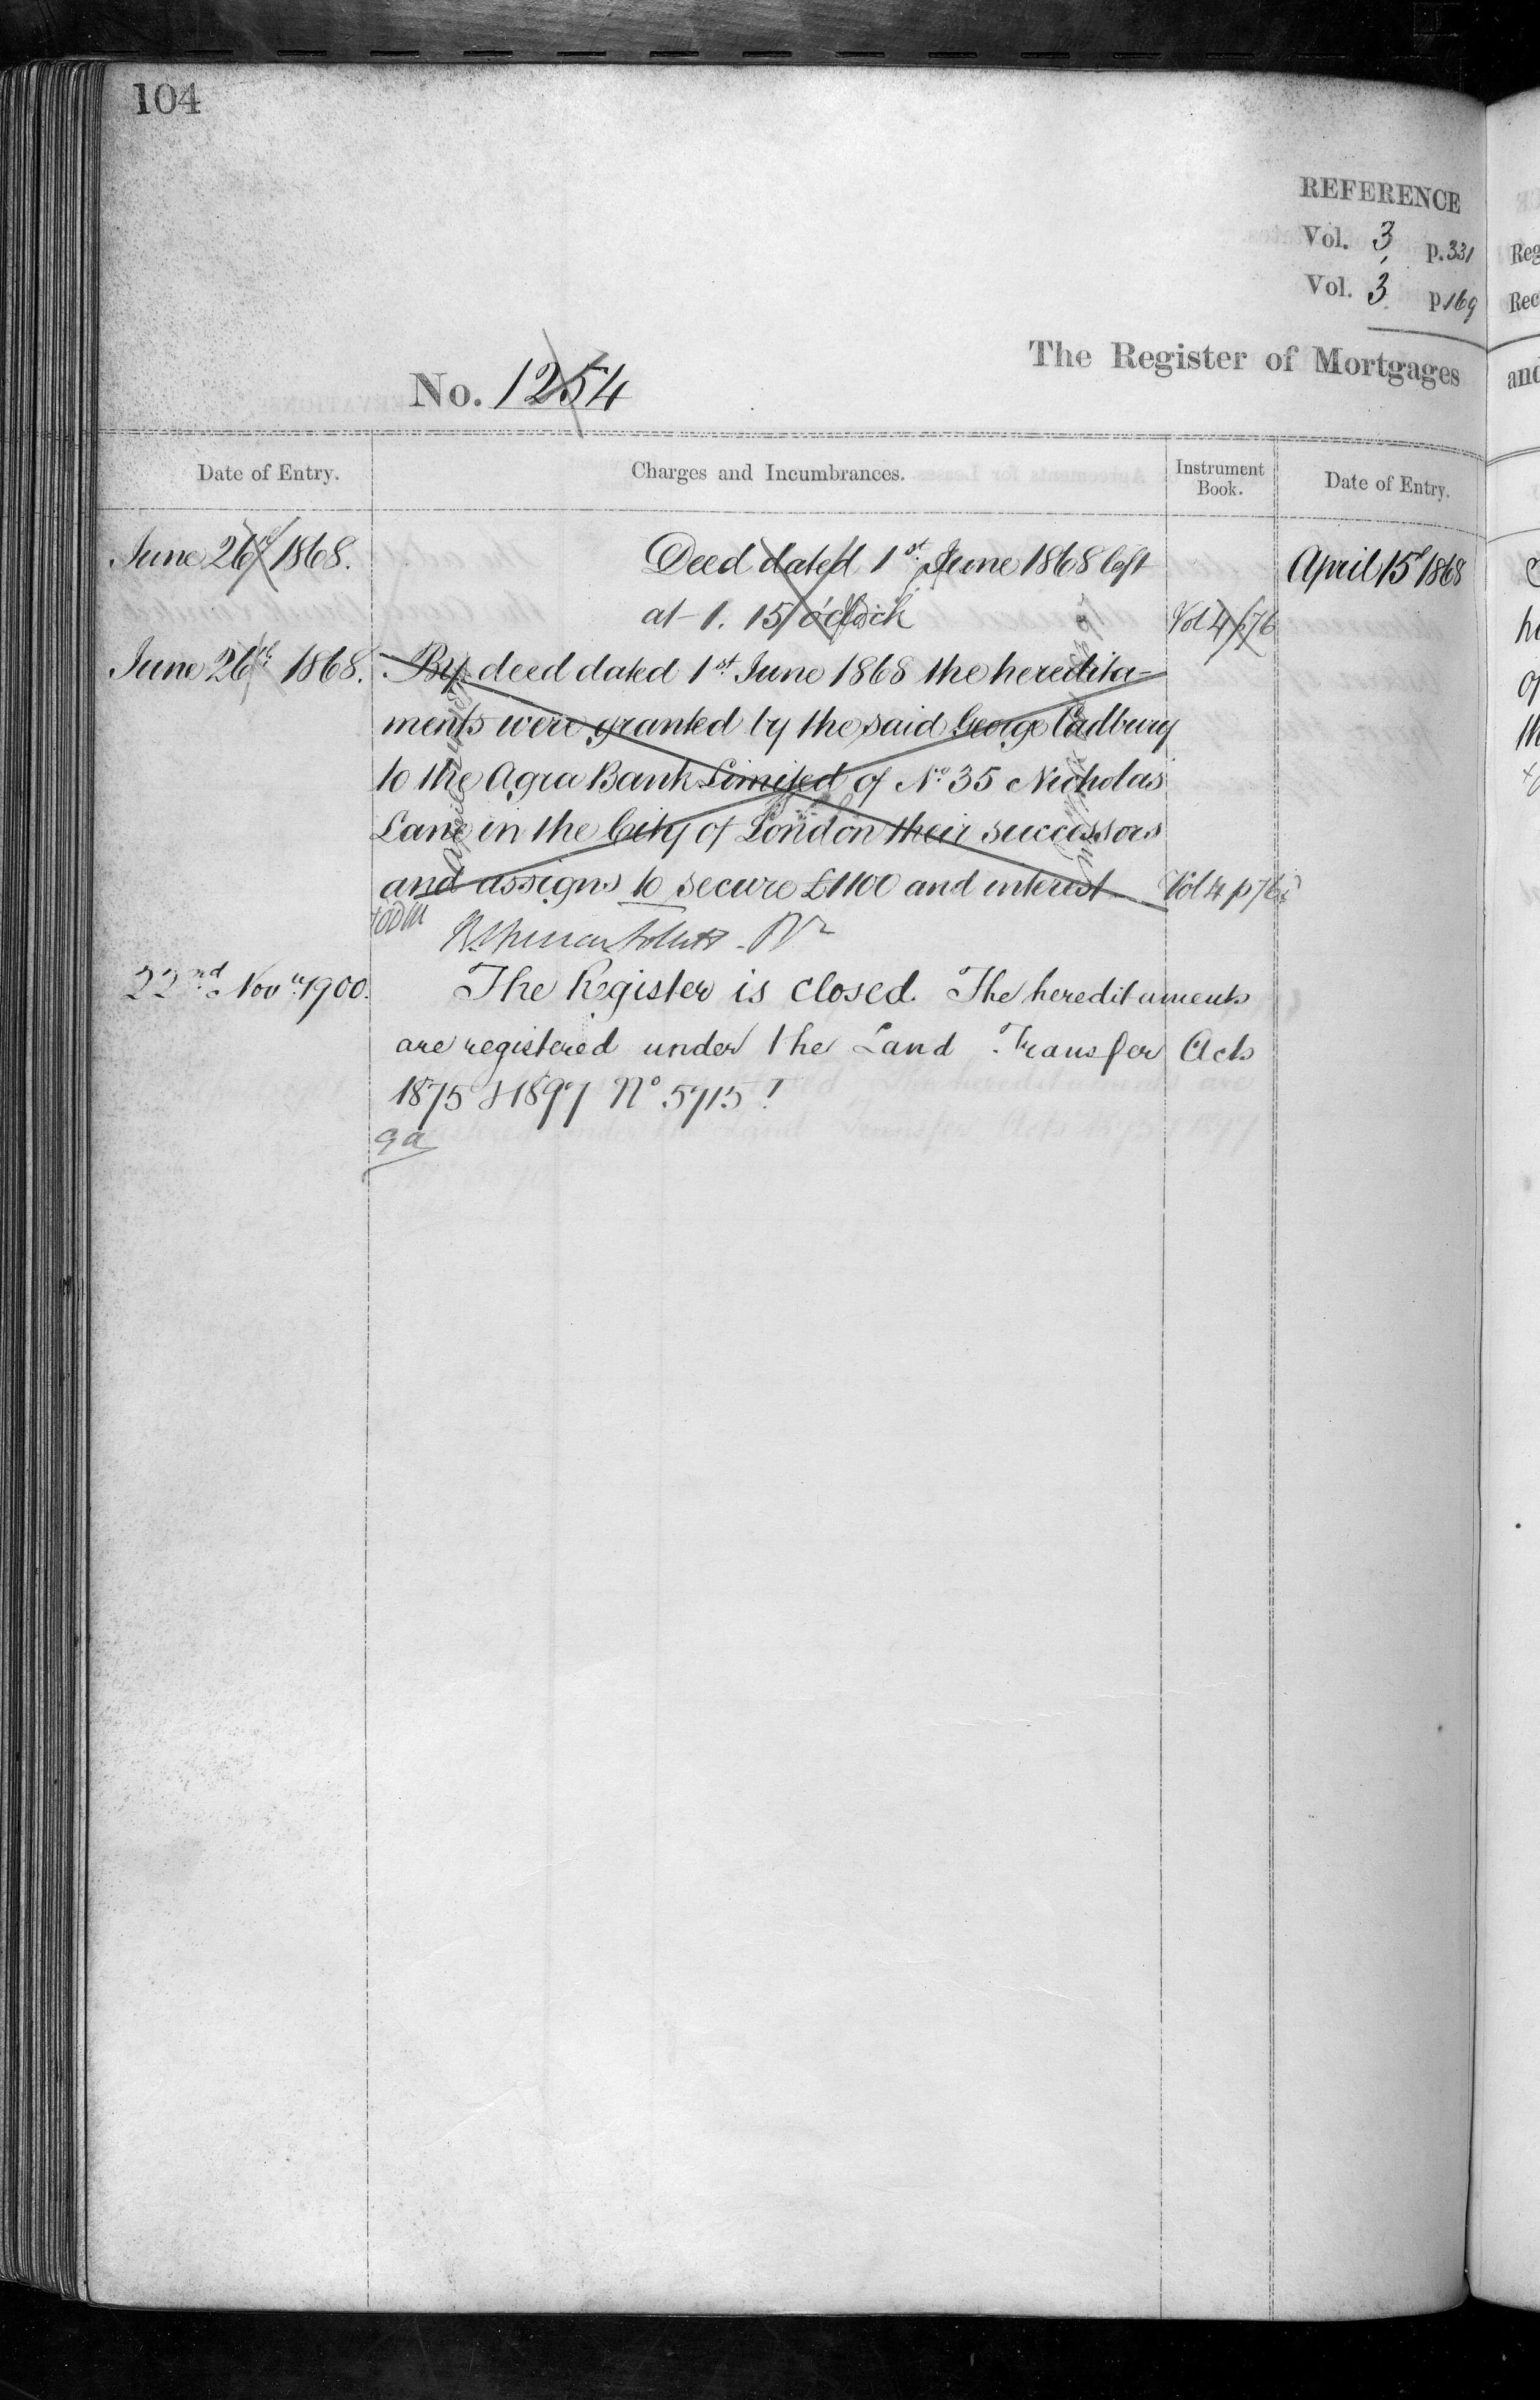 104
REFERENCE
Vol. 3 p. 331
Vol. 3 p 169
The Register of Mortgages
No. 1254
Date of Entry.
Charges and Incumbrances.
Instrument
Book.
Date of Entry.
June 26th 1868.
Deed dated 1st June 1868 left
at 1.15 o'clock
Vol 4 p 76
April 15 1868
June 26th 1868.
By deed dated 1st June 1868 the heredita-
ments were granted by the said George Cadbury
to the Agra Bank Limited of No. 35 Nicholas
Lane in the City of London their successors
and assigns to secure £1100 and interest
Vol 4 p 76
22nd Novr. 1900.
The Register is closed. The hereditaments
are registered under the Land Transfer Acts
1875 & 1897 No 5715
Reg
Rec
and